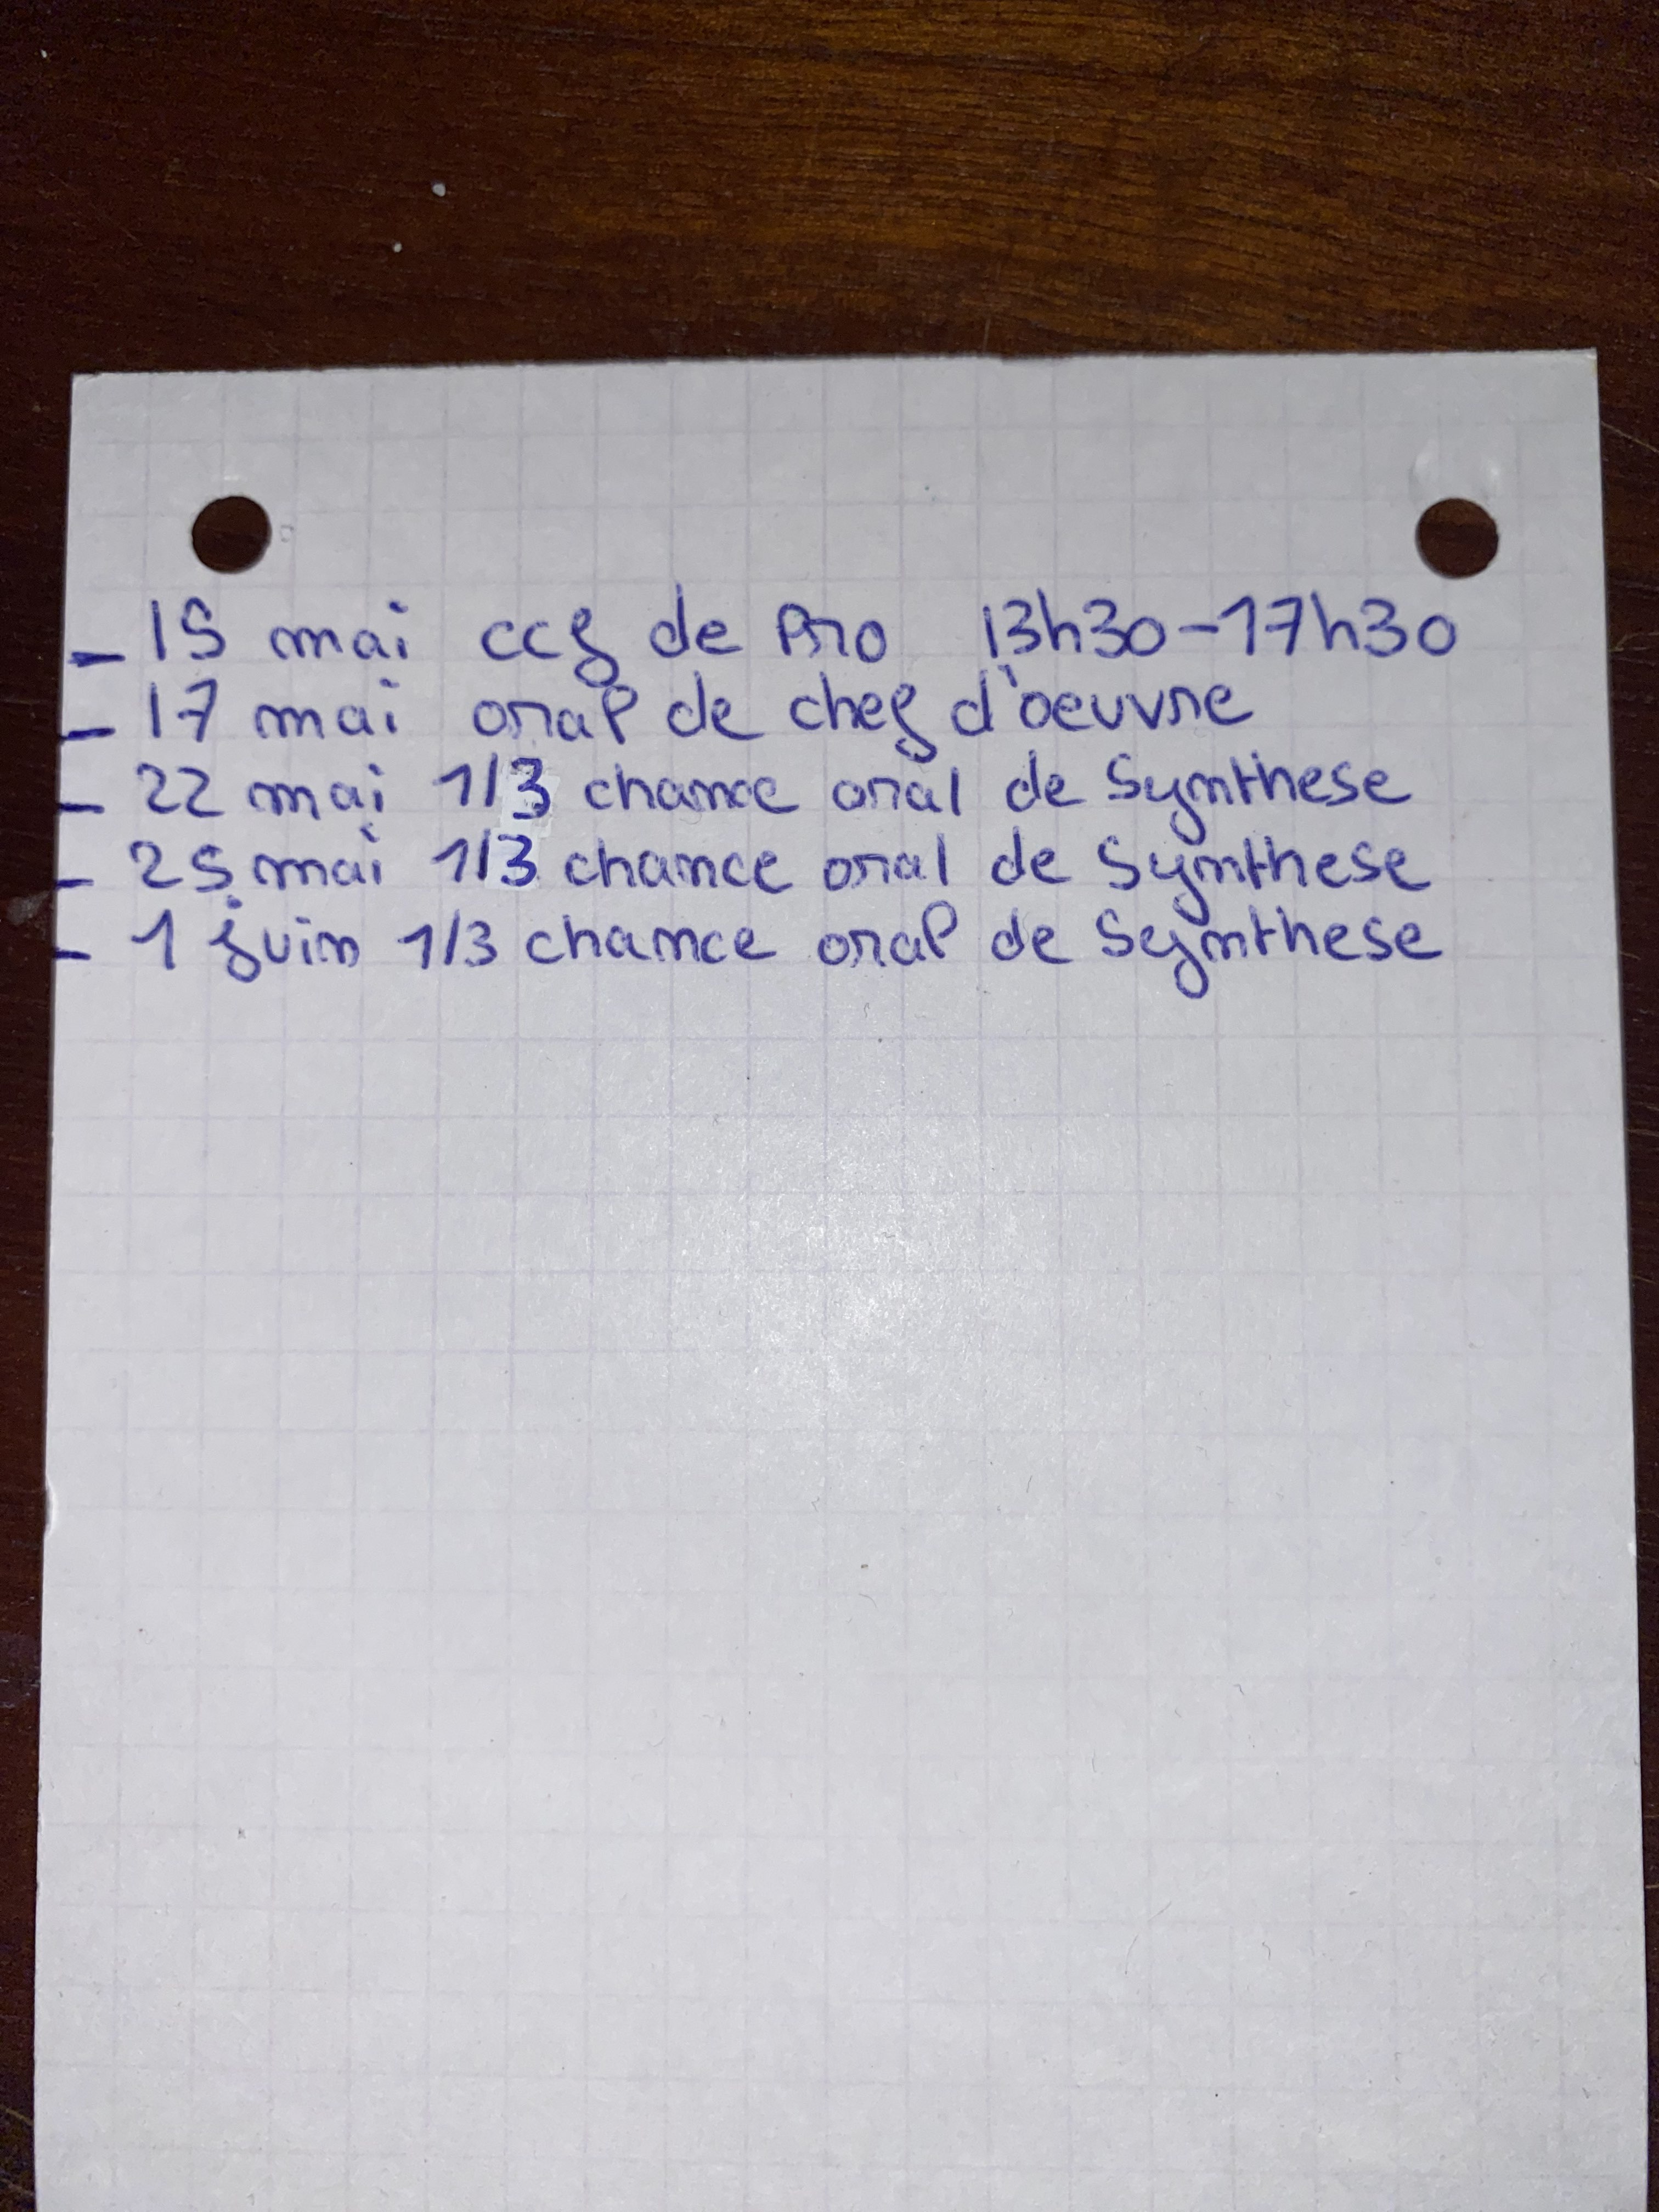 - 15 mai ccf de Pro 13h30-17h30
- 17 mai oral de chef d'oeuvre
- 22 mai 1/3 chance oral de Synthese
- 25 mai 1/3 chance oral de Synthese
- 1 juin 1/3 chance oral de Synthese